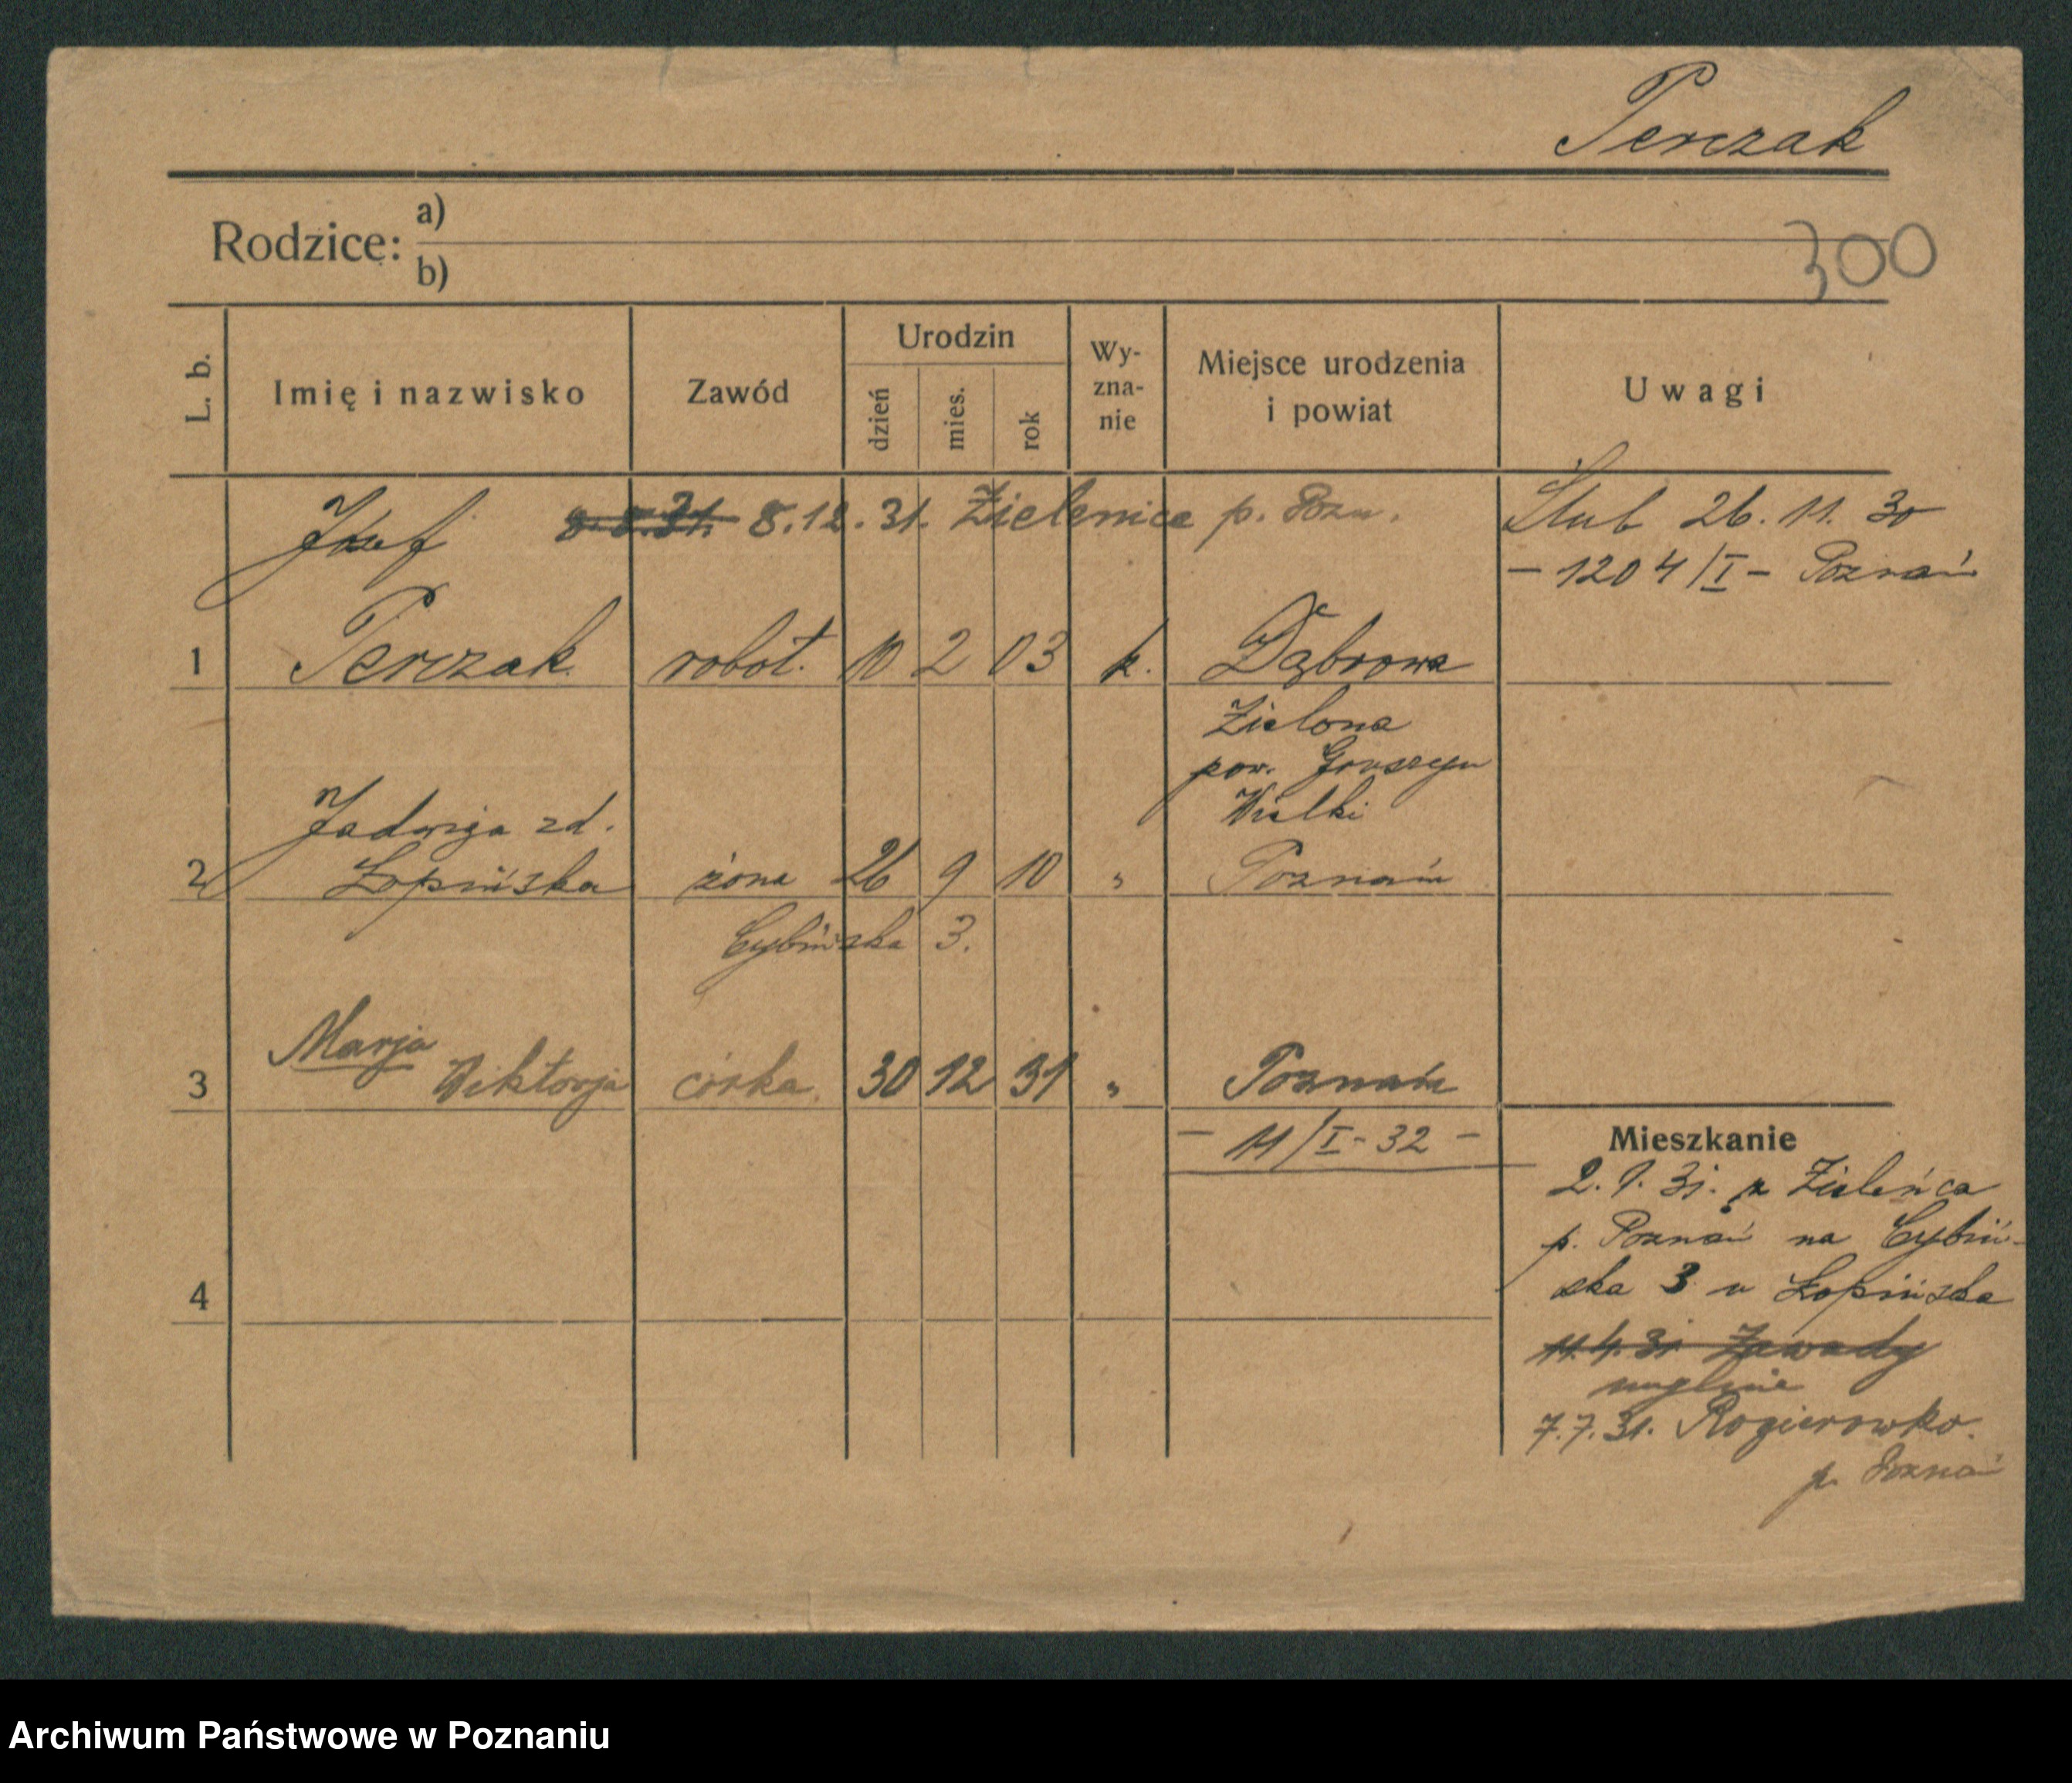 Perczak
Rodzice: a)
b)
300
L. b.
Imię i nazwisko
Zawód
Urodzin
dzień
mies.
rok
Wy-
zna-
nie
Miejsce urodzenia
i powiat
Uwagi
Józef 8.12.31. Zielenice p. Pozn.
Ślub 26.11.30
- 1204/I - Poznań
1 Perczak robot. 10 2 03 k. Dąbrowa
Zielona
pow.
Wielki
Jadwiga zd.
2 Łopińska żona 26 9 10 " Poznań
Cybińska 3.
Marja
3 Wiktorja córka. 30 12 31 " Poznań
- 11/I - 32 -
4
Mieszkanie
2.1.31. z Zieleńca
p. Poznań na Cybiń-
ska 3 u Łopińska
11.4.31 Zawady
7.7.31. Rogierowko.
p. Poznań
Archiwum Państwowe w Poznaniu